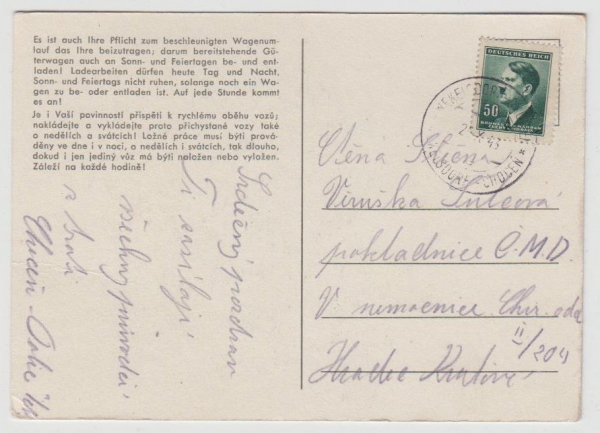 Es ist auch Ihre Pflicht zum beschleunigten Wagenum-
lauf das Ihre beizutragen; darum bereitstehende Gü-
terwagen auch an Sonn- und Feiertagen be- und ent-
laden! Ladearbeiten dürfen heute Tag und Nacht,
Sonn- und Feiertags nicht ruhen, solange noch ein Wa-
gen zu be- oder entladen ist. Auf jede Stunde kommt
es an!
Je i Vaší povinností přispěti k rychlému oběhu vozů;
nakládejte a vykládejte proto přichystané vozy také
o nedělích a svátcích! Ložné práce musí býti prová-
děny ve dne i v noci, o nedělích i svátcích, tak dlouho,
dokud i jen jediný vůz má býti naložen nebo vyložen.
Záleží na každé hodině!
Srdečný pozdrav
Ti zasílají
všichni
z
DEUTSCHES REICH
50
CHOCEN
Věruška
pokladnice Č.M.D.
V nemocnice Chir. odd.
II/204
Hradec Králové